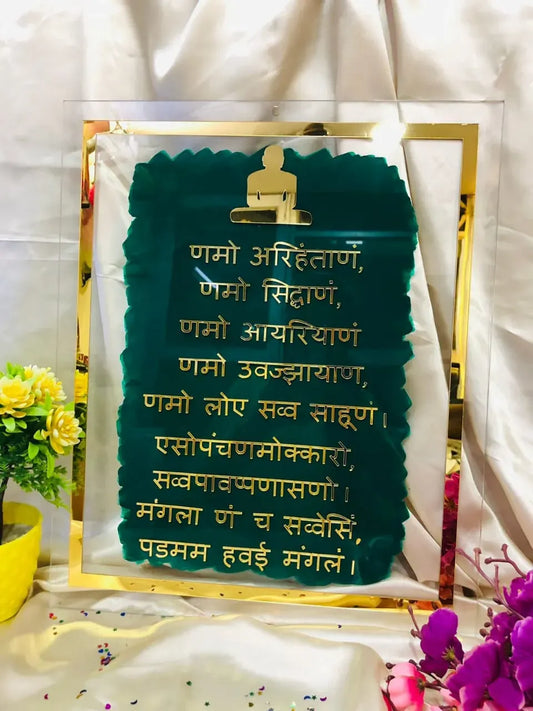 णमो अरिहंताणं,
णमो सिद्धाणं,
णमो आयरियाणं
णमो उवज्झायाण,
णमो लोए सव्व साहूणं।
एसोपंचणमोक्कारो,
सव्वपावप्पणासणो।
मंगला णं च सव्वेसिं,
पडमम हवई मंगलं।